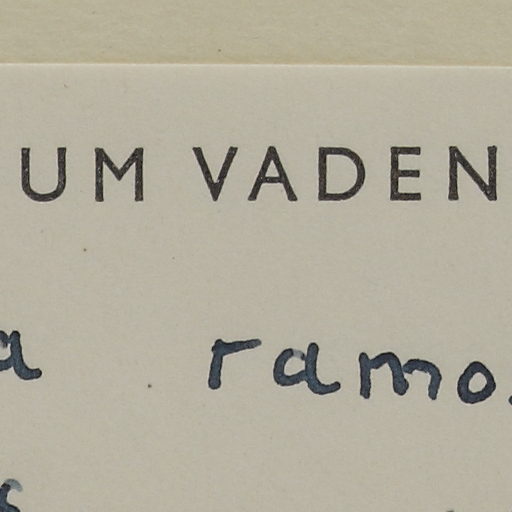 UM VADEN
a ramo
s